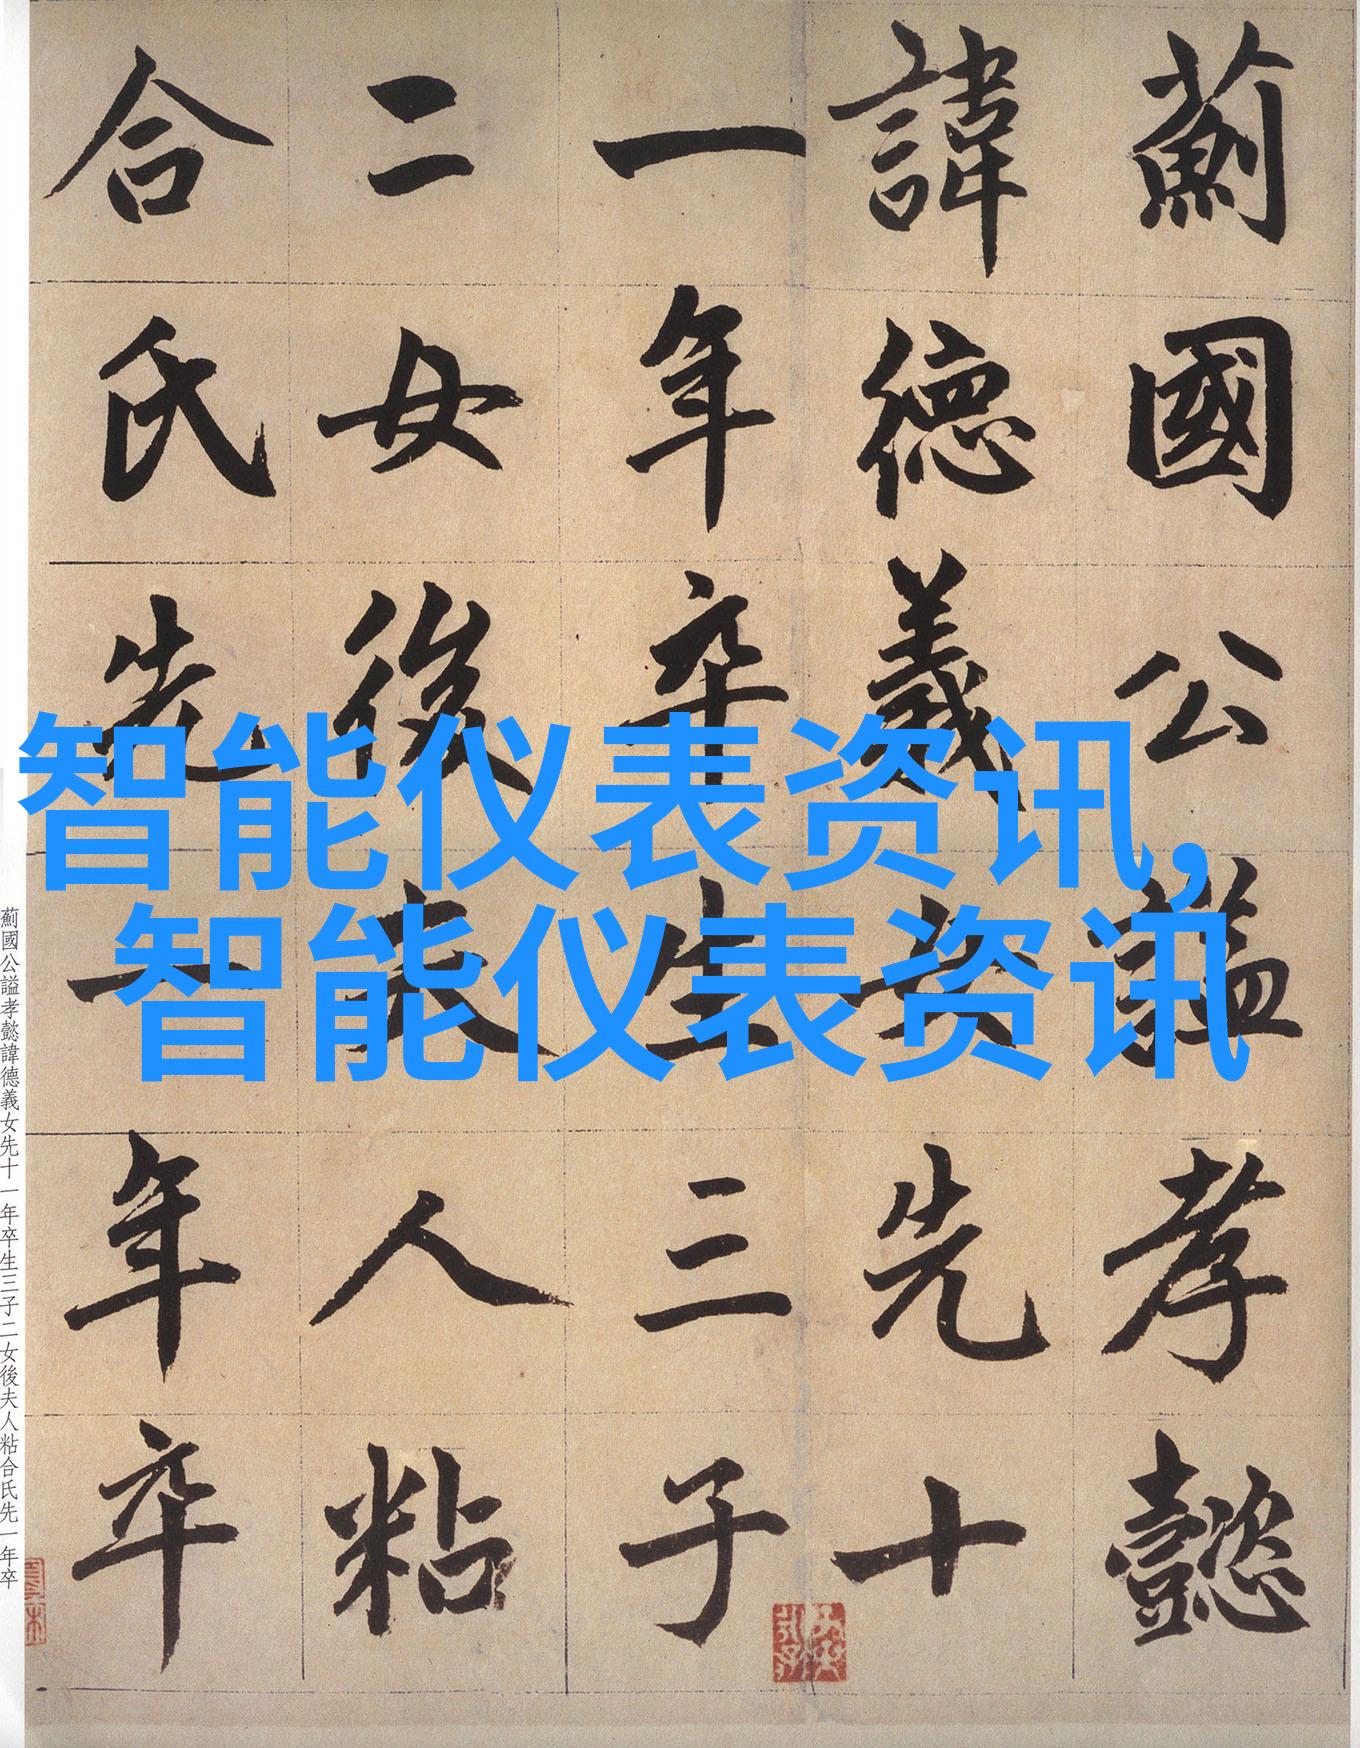 薊國公謚孝懿
諱德義女先十
一年卒生三子
二女後夫人粘
合氏先一年卒
智能仪表资讯,
智能仪表资讯
薊國公謚孝懿諱德義女先十一年卒生三子二女後夫人粘合氏先一年卒